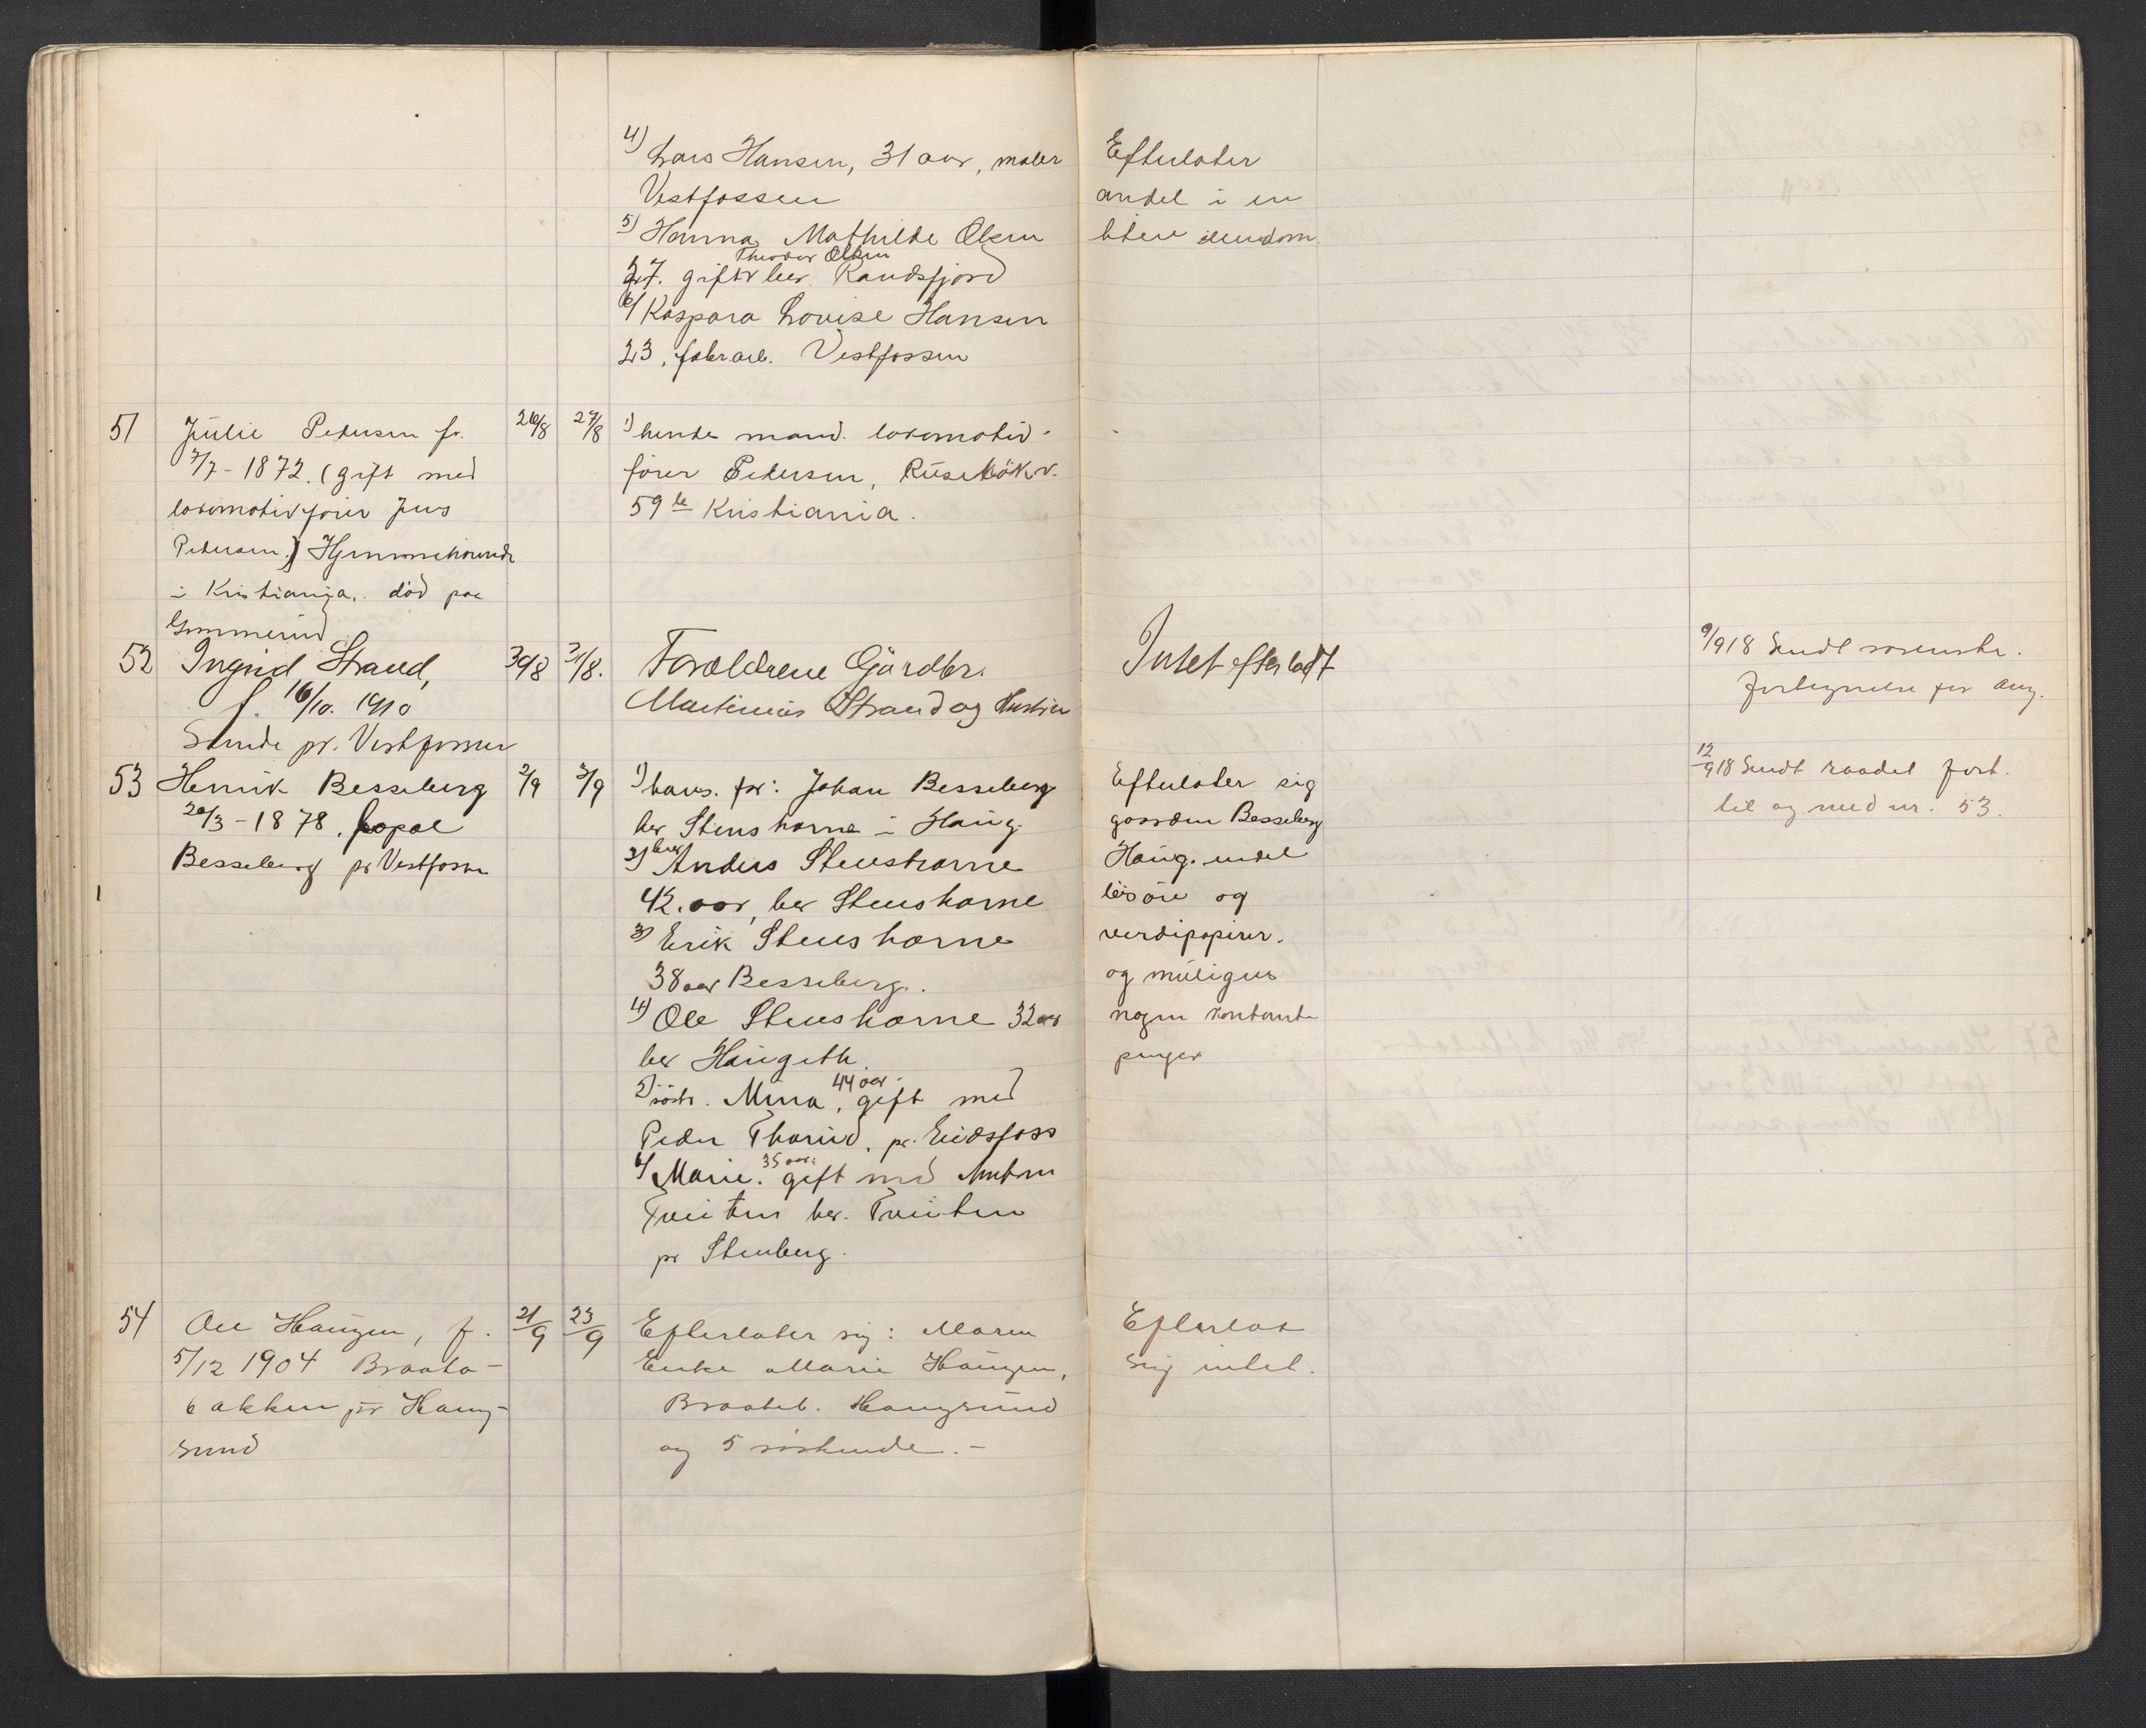 4) Lars Hansen, 31 aar, maler
Vestfossen
5) Hanna Mathilde Olsen
Theodor Olsen
27. gift v beo. Randsfjord
6) Kaspara Lovise Hansen
23, fabr.arb. Vestfossen
Efterlater
andel i en
liten eiendom
51 Julie Pedersen fr. 26/8 27/8 1) hendes mand. lokomotiv-
7/7 - 1872. (gift med
fører Pedersen, Ruseløkv.
lokomotivfører Jens
59 Kristiania.
Pedersen.) Hjemmehørende
i Kristiania. død paa
Gommerud
52 Ingrid Strand, 30/8 31/8. Forældrene Gårdbr.
f. 16/10. 1910
Martinius Strand og Hustru
Sande pr. Vestfossen
Intet efterladt
9/9 18 Sendt sorenskr.
fortegnelse for aug.
53 Henrik Besseberg 2/9 3/9 1) hans far: Johan Besseberg
20/3 - 1878.
Besseberg pr Vestfossen
ber Stenshorne i Haug.
2) bror Anders Stenshorne
42. aar, ber Stenshorne
3) Erik Stenshorne
38 aar Besseberg.
4) Ole Stenshorne 32 aar
ber Haugeth
5) søstr. Mina, 44 aar. gift med
Peder Thorud, pr. Eidsfoss
6) Marie. 35 aar. gift med Anton
Tveiten ber. Tveiten
pr Stenberg.
Efterlater sig
gaarden Besseberg
Haug. endel
løsøre og
verdipapirer.
og muligens
nogen kontante
penger
12/9 18 Sendt raadet fort.
til og med nr. 53.
54 Ole Haugen, f. 21/9 23/9 Efterlater sig: Moren
5/12 1904 Braata-
Enke Marie Haugen,
bakken pr Haug-
Braateb. Hougsund
sund
og 5 søskende. -
Efterlot
sig intet.